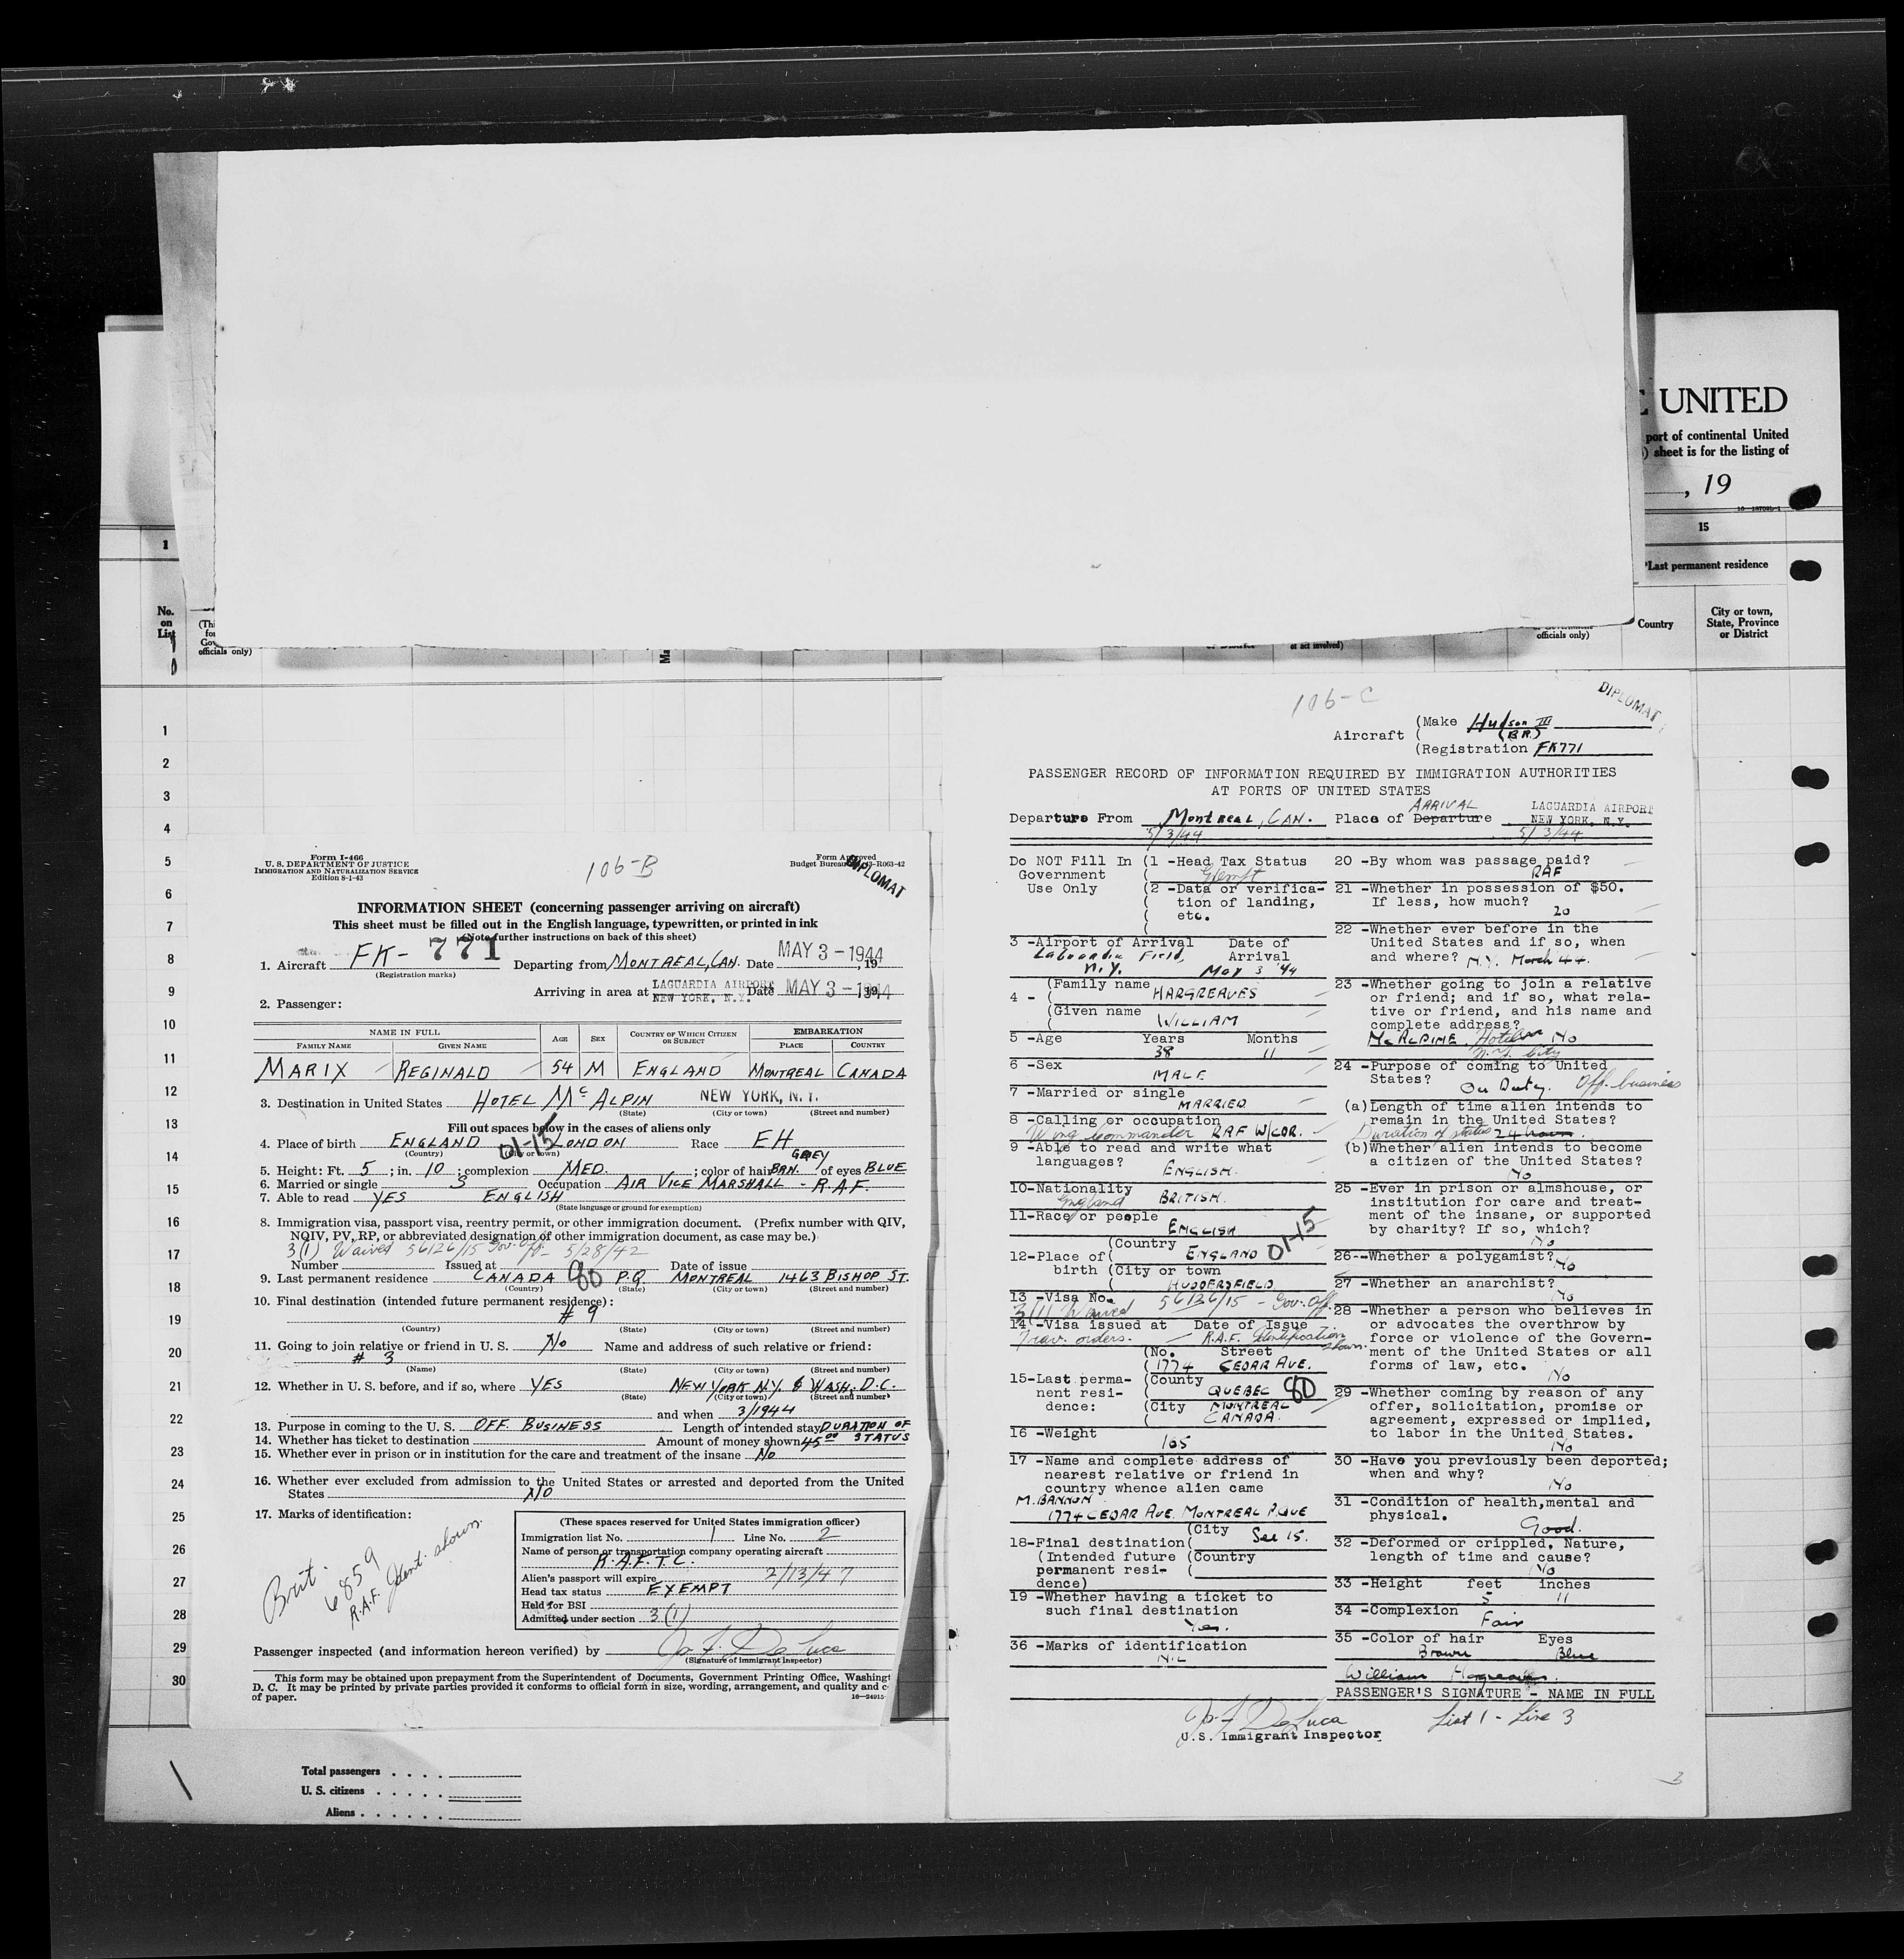 UNITED
port of continental United
sheet is for the listing of
, 19
1
15
Last permanent residence
No.
on
List
officials only)
officials only)
Country
City or town,
State, Province
or District
1
2
3
4
5
6
7
8
9
10
11
12
13
14
15
16
17
18
19
20
21
22
23
24
25
26
27
28
29
30
Total passengers
U. S. citizens
Aliens
Form I-466
U. S. DEPARTMENT OF JUSTICE
IMMIGRATION AND NATURALIZATION SERVICE
Edition 8-1-43
106-B
Form Approved
Budget Bureau 43-R063-42
DIPLOMAT
INFORMATION SHEET (concerning passenger arriving on aircraft)
This sheet must be filled out in the English language, typewritten, or printed in ink
(Note further instructions on back of this sheet)
1. Aircraft FK- 771 Departing from MONTREAL, CAN. Date MAY 3 - 1944, 19
(Registration marks)
Arriving in area at LAGUARDIA AIRPORT NEW YORK, N.Y. Date MAY 3 - 1944
2. Passenger:
NAME IN FULL AGE SEX COUNTRY OF WHICH CITIZEN OR SUBJECT EMBARKATION
FAMILY NAME GIVEN NAME PLACE COUNTRY
MARIX REGINALD 54 M ENGLAND MONTREAL CANADA
3. Destination in United States HOTEL McALPIN NEW YORK, N.Y.
(State) (City or town) (Street and number)
Fill out spaces below in the cases of aliens only
4. Place of birth ENGLAND 01-15 LONDON Race EH
(Country) (City or town)
GREY
5. Height: Ft. 5; in. 10; complexion MED.; color of hair BRN. of eyes BLUE
6. Married or single S Occupation AIR VICE MARSHALL - R.A.F.
7. Able to read YES ENGLISH
(State language or ground for exemption)
8. Immigration visa, passport visa, reentry permit, or other immigration document. (Prefix number with QIV,
NQIV, PV, RP, or abbreviated designation of other immigration document, as case may be.)
3(1) Waived 56126/15 Gov. Off. 5/28/42
Number Issued at Date of issue
9. Last permanent residence CANADA 80 P.Q. MONTREAL 1463 BISHOP ST.
(Country) (State) (City or town) (Street and number)
10. Final destination (intended future permanent residence):
# 9
(Country) (State) (City or town) (Street and number)
11. Going to join relative or friend in U. S. No Name and address of such relative or friend:
# 3
(Name) (State) (City or town) (Street and number)
12. Whether in U. S. before, and if so, where YES NEW YORK N.Y. & WASH. D.C.
(State) (City or town) (Street and number)
and when 3/1944
13. Purpose in coming to the U. S. OFF. BUSINESS Length of intended stay DURATION OF STATUS
14. Whether has ticket to destination Amount of money shown 45 00
15. Whether ever in prison or in institution for the care and treatment of the insane No
16. Whether ever excluded from admission to the United States or arrested and deported from the United
States NO
17. Marks of identification:
Brit.
6859
R.A.F. Ident. shown.
(These spaces reserved for United States immigration officer)
Immigration list No. 1 Line No. 2
Name of person or transportation company operating aircraft
R.A.F.T.C.
Alien's passport will expire 2/13/47
Head tax status EXEMPT
Held for BSI
Admitted under section 3(1)
Passenger inspected (and information hereon verified) by
(Signature of immigrant inspector)
This form may be obtained upon prepayment from the Superintendent of Documents, Government Printing Office, Washingt
D. C. It may be printed by private parties provided it conforms to official form in size, wording, arrangement, and quality and c
of paper.
16-24915
106-C
DIPLOMAT
Aircraft (Make Hudson III (BR)
(Registration FK771
PASSENGER RECORD OF INFORMATION REQUIRED BY IMMIGRATION AUTHORITIES
AT PORTS OF UNITED STATES
Departure From Montreal, CAN. Place of Departure ARRIVAL LAGUARDIA AIRPORT NEW YORK, N.Y.
5/3/44 5/3/44
Do NOT Fill In
Government
Use Only
1 -Head Tax Status
Exempt
2 -Data or verifica-
tion of landing,
etc.
3 -Airport of Arrival Date of Arrival
LaGuardia Field, N.Y. May 3 '44
4 - (Family name HARGREAVES
(Given name WILLIAM
5 -Age Years Months
38 11
6 -Sex
MALE
7 -Married or single
MARRIED
8 -Calling or occupation
Wing Commander RAF W/CDR.
9 -Able to read and write what
languages?
ENGLISH.
10-Nationality
England BRITISH.
11-Race or people
ENGLISH
12-Place of birth (Country ENGLAND 01-15
(City or town
HUDDERSFIELD
13 -Visa No.
3(1) Waived 56126/15 - Gov. Off.
14 -Visa issued at Date of Issue
Trav. orders. - R.A.F. Identification shown.
15-Last perma-
nent resi-
dence:
(No. Street
1774 CEDAR AVE.
(County QUEBEC 80
(City MONTREAL
CANADA.
16 -Weight
165
17 -Name and complete address of
nearest relative or friend in
country whence alien came
M. BANNON
1774 CEDAR AVE. MONTREAL P.QUE
18-Final destination
(Intended future
permanent resi-
dence)
(City See 15.
(Country
19 -Whether having a ticket to
such final destination
Yes.
36 -Marks of identification
NIL
20 -By whom was passage paid?
RAF
21 -Whether in possession of $50.
If less, how much?
20
22 -Whether ever before in the
United States and if so, when
and where? N.Y. March 44.
23 -Whether going to join a relative
or friend; and if so, what rela-
tive or friend, and his name and
complete address?
McALPINE. Hotel No
N.Y. City
24 -Purpose of coming to United
States? On Duty. Off. business
(a) Length of time alien intends to
remain in the United States?
Duration of status 24 hours.
(b) Whether alien intends to become
a citizen of the United States?
No
25 -Ever in prison or almshouse, or
institution for care and treat-
ment of the insane, or supported
by charity? If so, which?
No
26--Whether a polygamist? No
27 -Whether an anarchist?
No
28 -Whether a person who believes in
or advocates the overthrow by
force or violence of the Govern-
ment of the United States or all
forms of law, etc.
No
29 -Whether coming by reason of any
offer, solicitation, promise or
agreement, expressed or implied,
to labor in the United States.
No
30 -Have you previously been deported;
when and why?
No
31 -Condition of health,mental and
physical.
Good.
32 -Deformed or crippled. Nature,
length of time and cause?
No
33 -Height feet inches
5 11
34 -Complexion
Fair
35 -Color of hair Eyes
Brown Blue
William Hargreaves.
PASSENGER'S SIGNATURE - NAME IN FULL
U.S. Immigrant Inspector
List 1 - Line 3